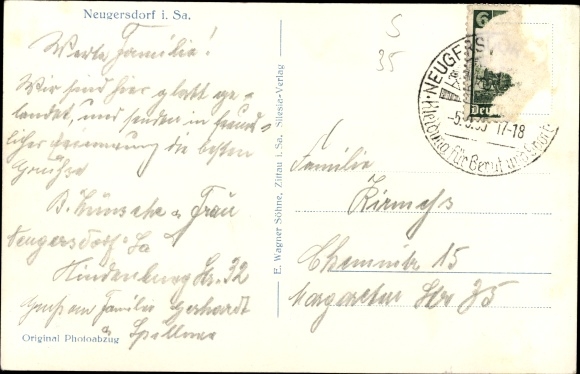 Neugersdorf i. Sa.
Werte Familie!
Wir sind hier glatt ge-
landet, und senden in freund-
licher Erinnerung die besten
Grüsse
B. Wünsche u. Frau
Neugersdorf i. Sa
Hindenburg Str. 32
Gruß an Familie Gerhardt
u.
Original Photoabzug
E. Wagner Söhne, Zittau i. Sa., Silesia-Verlag
S
35
6
NEUGE
17-18
Kleidung für Beruf und Sport
Familie
Chemnitz 15
Str 35